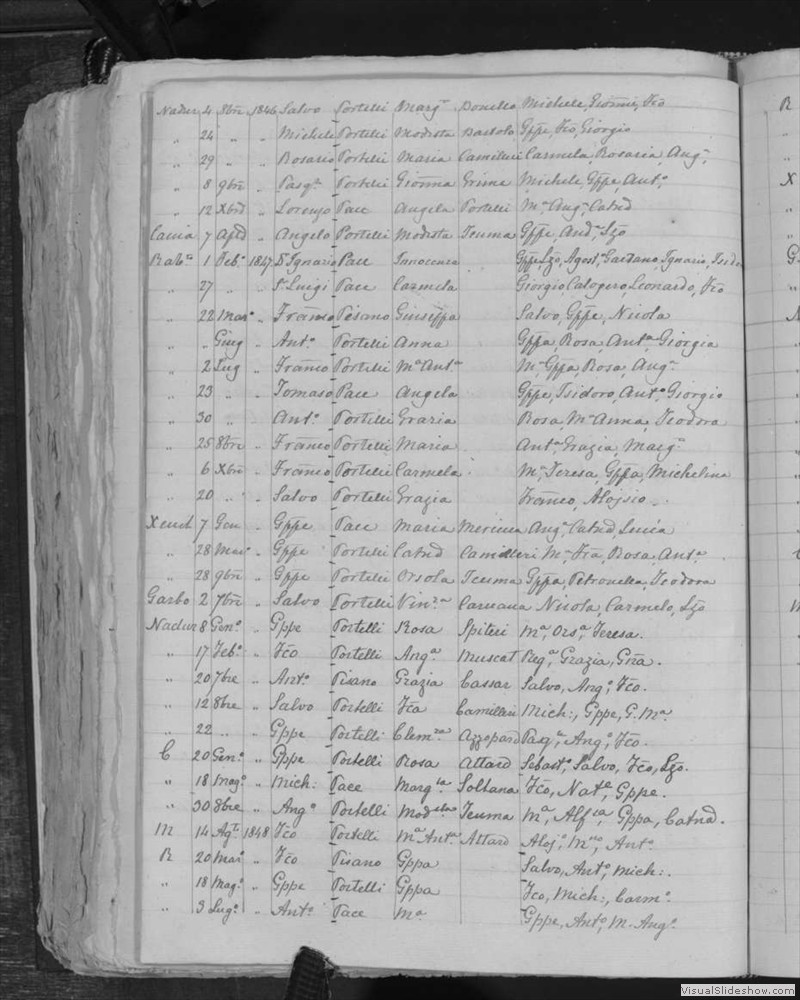 Nadur 4 8bre 1846 Salvo Portelli Margta Bonello Michele, Giomi, Fco
" 24 " " Michele Portelli Modesta Bartolo Gppe, Fco, Giorgio
" 29 " " Rosario Portelli Maria Camilleri Carmela, Rosaria, Ang.
" 8 9bre " Pasqe Portelli Gioma Grima Michele, Gppe, Anto
" 12 Xbre " Lorenzo Pace Angela Portelli Ma, Anga, Catnd
7 " Angelo Portelli Modesta Teuma Gppe, And, Lzo
Rabto 1 Febo 1847 Dr Ignazio Pace Innocenza Gppe, Lzo, Agost, Gaetano, Ignazio, Isido
" 27 " " Luigi Pace Carmela Giorgio, Calogero, Leonardo, Fco
" 22 Maro " Franco Pisano Giuseppa Salvo, Gppe, Nicola
" " Giug " Anto Portelli Anna Gppa, Rosa, Anta, Giorgia
" 2 Lug " Franco Portelli Ma Anta Ma, Gppa, Rosa, Anga
" 23 " " Tomaso Pace Angela Gppe, Isidoro, Anto, Giorgio
" 30 " " Anto Portelli Grazia Rosa, Ma Anna, Teodora
" 25 8bre " Franco Portelli Maria Anta, Grazia, Marga
" 6 Xbre " Franco Portelli Carmela Ma, Teresa, Gppa, Michelina
" 20 " " Salvo Portelli Grazia Franco, Alojsio
Xeud 7 Gen " Gppe Pace Maria Mercieca Anga, Catnd, Lucia
" 28 Maro " Gppe Portelli Catnd Camilleri Ma, Fra, Rosa, Anta
" 28 9bre " Gppe Portelli Orsola Teuma Gppa, Petronella, Teodora
Garbo 2 7bre " Salvo Portelli Vinza Caruana Nicola, Carmelo, Lzo
Nadur 8 Geno " Gppe Portelli Rosa Spiteri Ma, Orsa, Teresa.
" 17 Febo " Fco Portelli Anga Muscat Grazia, Gna.
" 20 7bre " Anto Pisano Grazia Cassar Salvo, Ango, Fco.
" 12 8bre " Salvo Portelli Fca Camilleri Mich:, Gppe, G. Ma
" 22 " " Gppe Portelli Clemza Azzopard Pasqa, Ango, Fco.
C 20 Geno " Gppe Portelli Rosa Attard Sebasto, Salvo, Fco, Lzo.
" 18 Mago " Mich: Pace Margta Soltana Fco, Nate, Gppe.
" 30 8bre " Ango Portelli Modsta Teuma Ma, Gppa, Catnd.
M 14 Agto 1848 Fco Portelli Ma Anta Attard Alojo, Mno, Anto
R 20 Maro " Fco Pisano Gppa Salvo, Anto, Mich:.
" 18 Mago " Gppe Portelli Gppa Fco, Mich:, Carmo
" 3 Lugo " Anto Pace Ma Gppe, Anto, M. Ango
VisualSlideshow.com